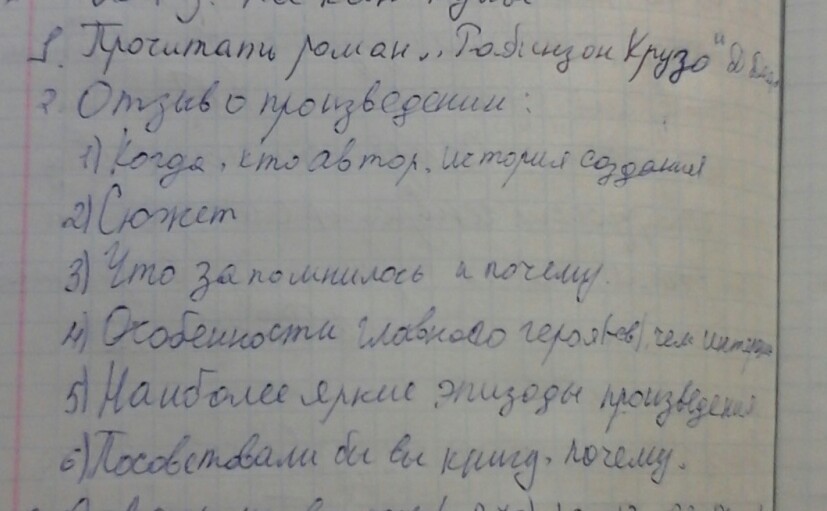 1. Прочитать роман „Робинзон Крузо"
2. Отзыв о произведении:
1) Когда, кто автор, история создания
2) Сюжет
3) Что запомнилось и почему.
4) Особенности главного героя(-ев), чем
5) Наиболее яркие эпизоды произведения
6) Посоветовали бы вы книгу, почему.